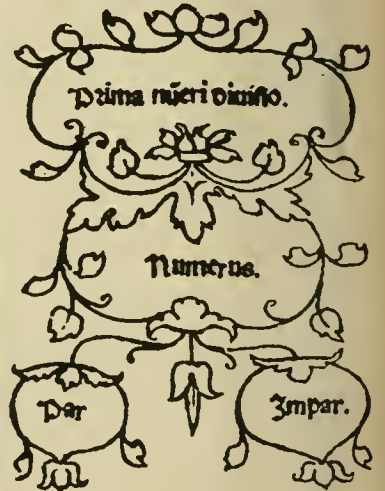 Prima nũeri diuisio.
Numerus.
Par
Impar.